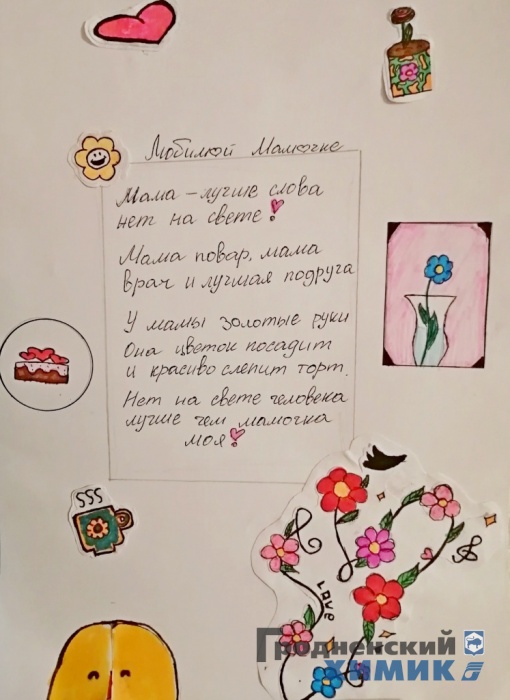 Любимой Мамочке
Мама – лучше слова
нет на свете!
Мама повар, мама
врач и лучшая подруга
У мамы золотые руки
Она цветок посадит
и красиво слепит торт.
Нет на свете человека
лучше чем мамочка
моя!
SSS
LOVE
Гродненский
ХИМИК